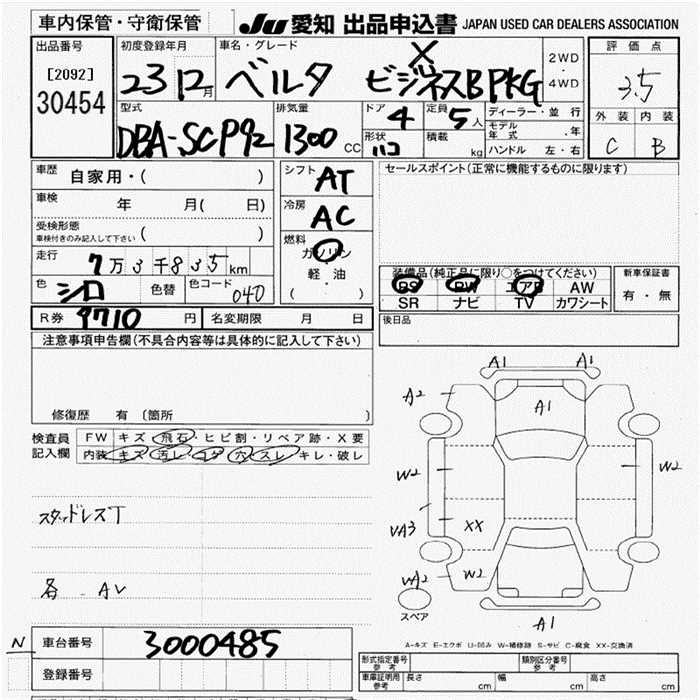 車内保管・守衛保管
JU 愛知 出品申込書 JAPAN USED CAR DEALERS ASSOCIATION
出品番号
[2092]
30454
初度登録年月
23 12月
車名・グレード
X
ベルタ ビジネスBPKG
2WD
・
4WD
評価点
3.5
外装 内装
C B
型式
DBA-SCP92
排気量
1300 CC
ドア
4
定員
5人
形状
ハコ
積載
kg
ディーラー・並行
モデル年式 ・年
ハンドル 左・右
車歴
自家用・( )
車検
年 月( 日)
受検形態
車検付きのみ記入して下さい ( )
走行
7万3千835km
色
シロ
色替
色コード
040
シフト
AT
冷房
AC
燃料
ガソリン
・
軽油
( )
セールスポイント(正常に機能するものに限ります)
装備品(純正品に限り○をつけてください)
PS PW エアB AW
SR ナビ TV カワシート
新車保証書
有・無
R券 9710 円
名変期限 月 日
後日品
注意事項申告欄(不具合内容等は具体的に記入して下さい)
修復歴 有 〔箇所 〕
検査員
記入欄
FW キズ・飛石・ヒビ割・リペア跡・X要
内装 キズ・汚レ・コゲ・穴・スレ・キレ・破レ
スタッドレスT
各 AV
A1 A1
A2
A1
W2 W2
VA3
XX
WA2
W2
A1
スペア
A-キズ E-エクボ U-凹み W-補修跡 S-サビ C-腐食 XX-交換済
N
車台番号
3000485
登録番号
形式指定番号
参考
類別区分番号
参考
車庫証明用
参考
長さ cm
幅 cm
高さ cm